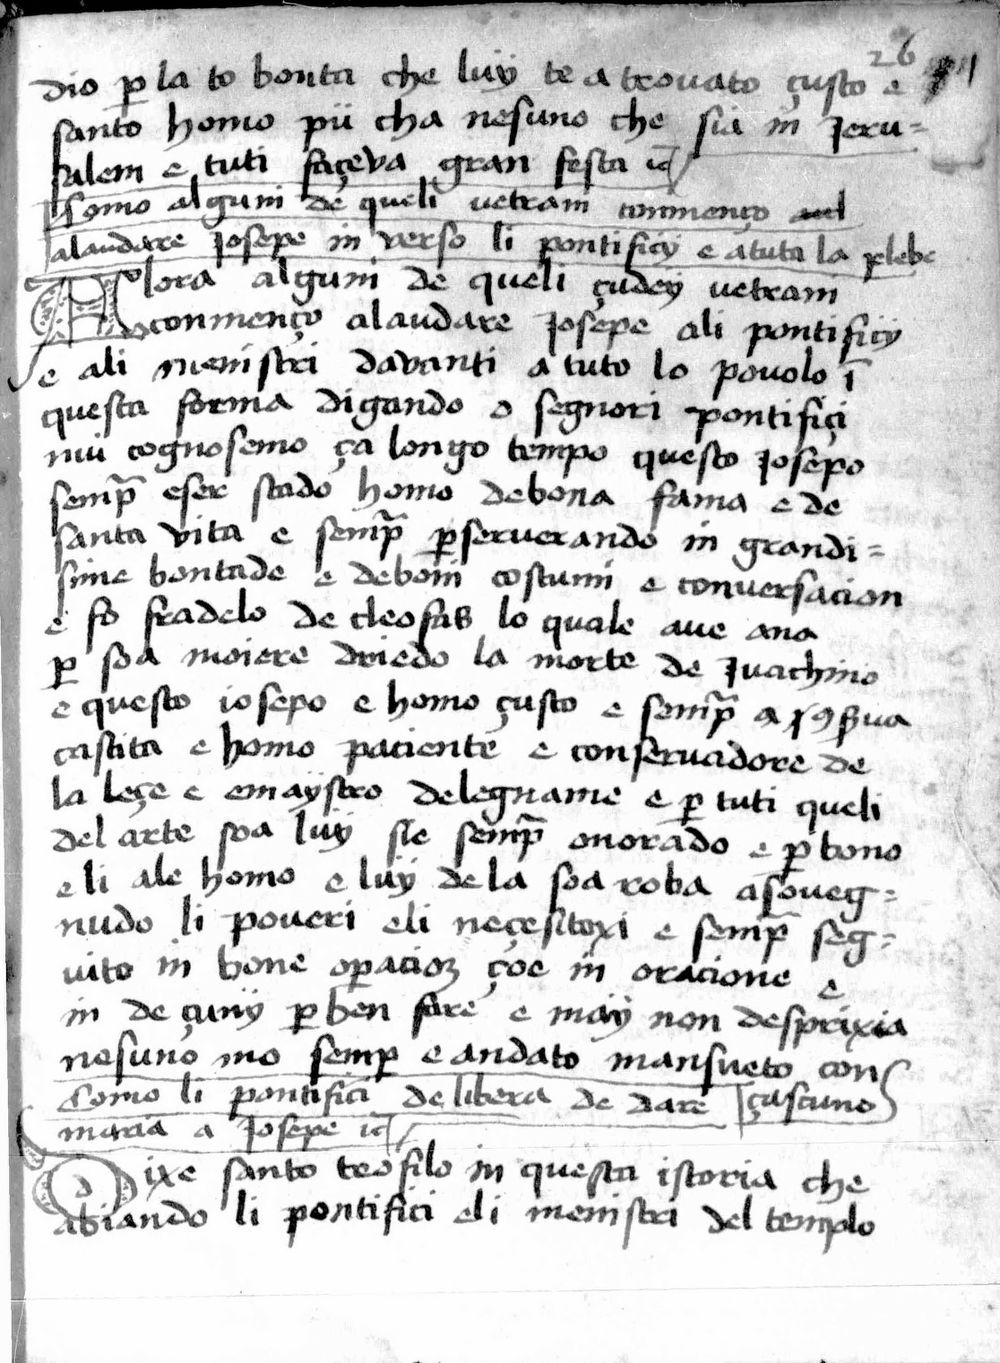 26
dio p̱ la to bonta che luÿ te a trovato çusto e
santo homo pü cha nesuno che sia in Jeru=
salem e tuti façeva gran festa
Como alguni de queli vetrani conmenço
alaudare Josepe in verso li pontificÿ e atuta la plebe
Alora alguni de queli çudeÿ vetrani
conmenço alaudare Josepe ali pontificÿ
e ali menistri davanti a tuto lo povolo ī
questa forma digando o segnori pontifici
nui cognosemo ça longo tempo questo Josepo
semp̄ eser stado homo debona fama e de
santa vita e semp̄ p̱serverando in grandi=
sime bontade e deboni costumi e conversacion
e fo fradelo de cleofas lo quale ave ana
p̱ soa moiere driedo la morte de Juachino
e questo iosepo e homo çusto e semp̄ a
castita e homo paciente e conservadore de
la leçe e emaÿstro delegname e p̱ tuti queli
del arte soa luÿ sie semp̄ onorado e p̱ bono
e li ale homo e luÿ dela soa roba asoveg=
nudo li poveri eli neçesitoxi e semp̄ seg=
vito in bone çoe in oracione e
in deçunÿ p̱ ben fare e maÿ non desprixia
nesuno mo semp̱ e andato mansueto con
çascuno
Como li pontifici delibera de dare
maria a Josepe
Dixe santo teofilo in questa istoria che
abiando li pontifici eli menistri del templo